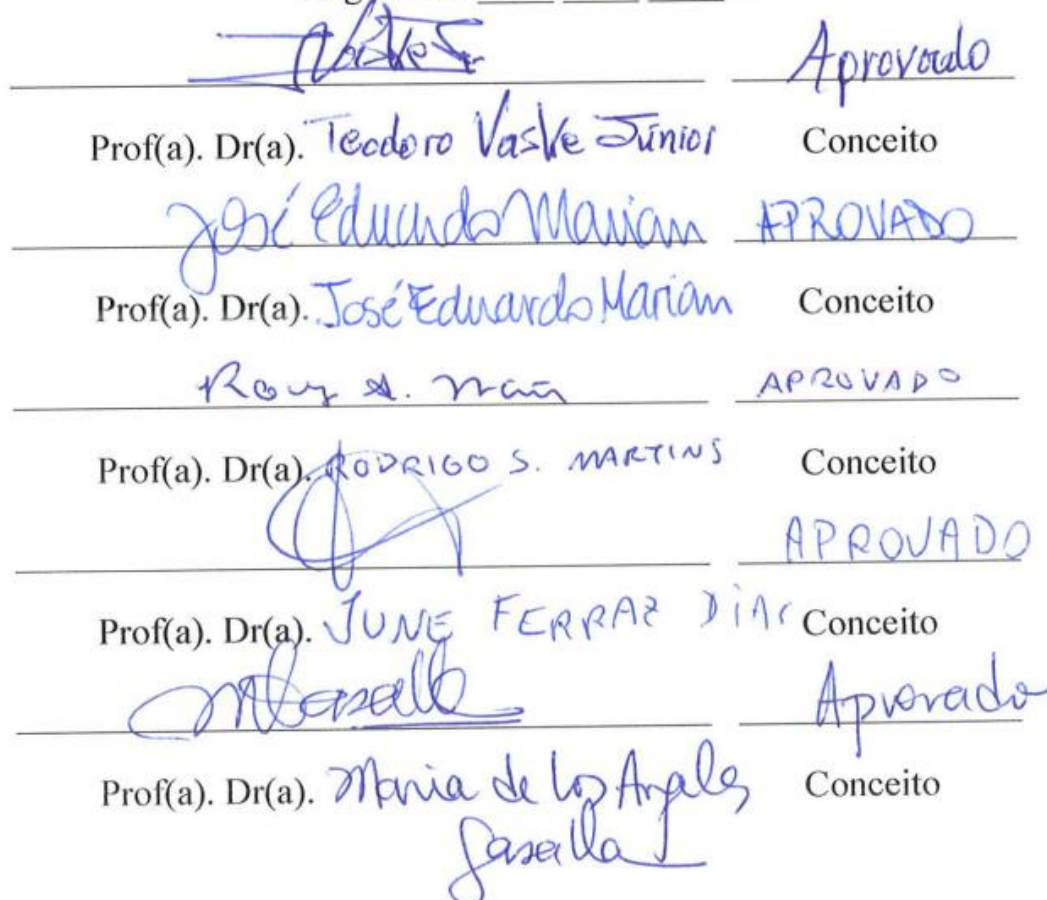 Aprovado
Prof(a). Dr(a). Teodoro Vaske Júnior Conceito
José Eduardo Marian APROVADO
Prof(a). Dr(a). José Eduardo Marian Conceito
APROVADO
Prof(a). Dr(a). RODRIGO S. MARTINS Conceito
APROVADO
Prof(a). Dr(a). JUNE FERRAZ DIAS Conceito
Aprovado
Prof(a). Dr(a). Maria de los Angeles Conceito
Gasalla